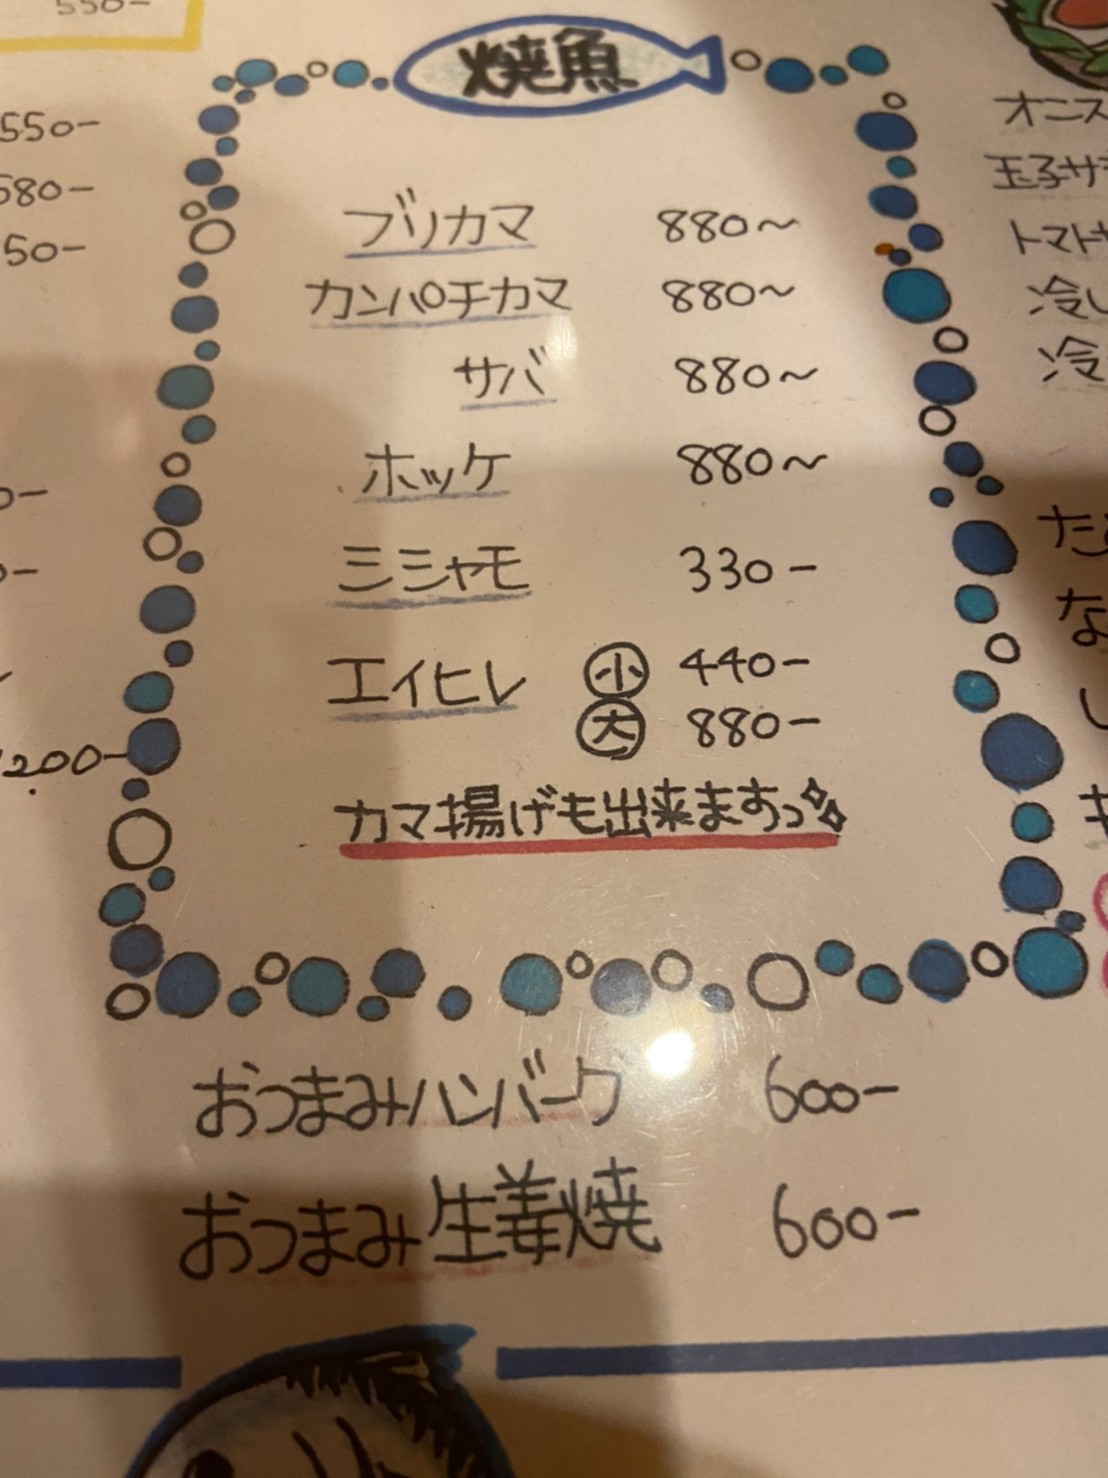 550-
焼魚
550-
580-
50-
ブリカマ 880~
カンパチカマ 880~
サバ 880~
ホッケ 880~
シシャモ 330-
エイヒレ 小 440-
大 880-
カマ揚げも出来ますっ
200-
おつまみハンバーグ 600-
おつまみ生姜焼 600-
オニス
玉子サ
トマト
冷し
冷
た
な
し